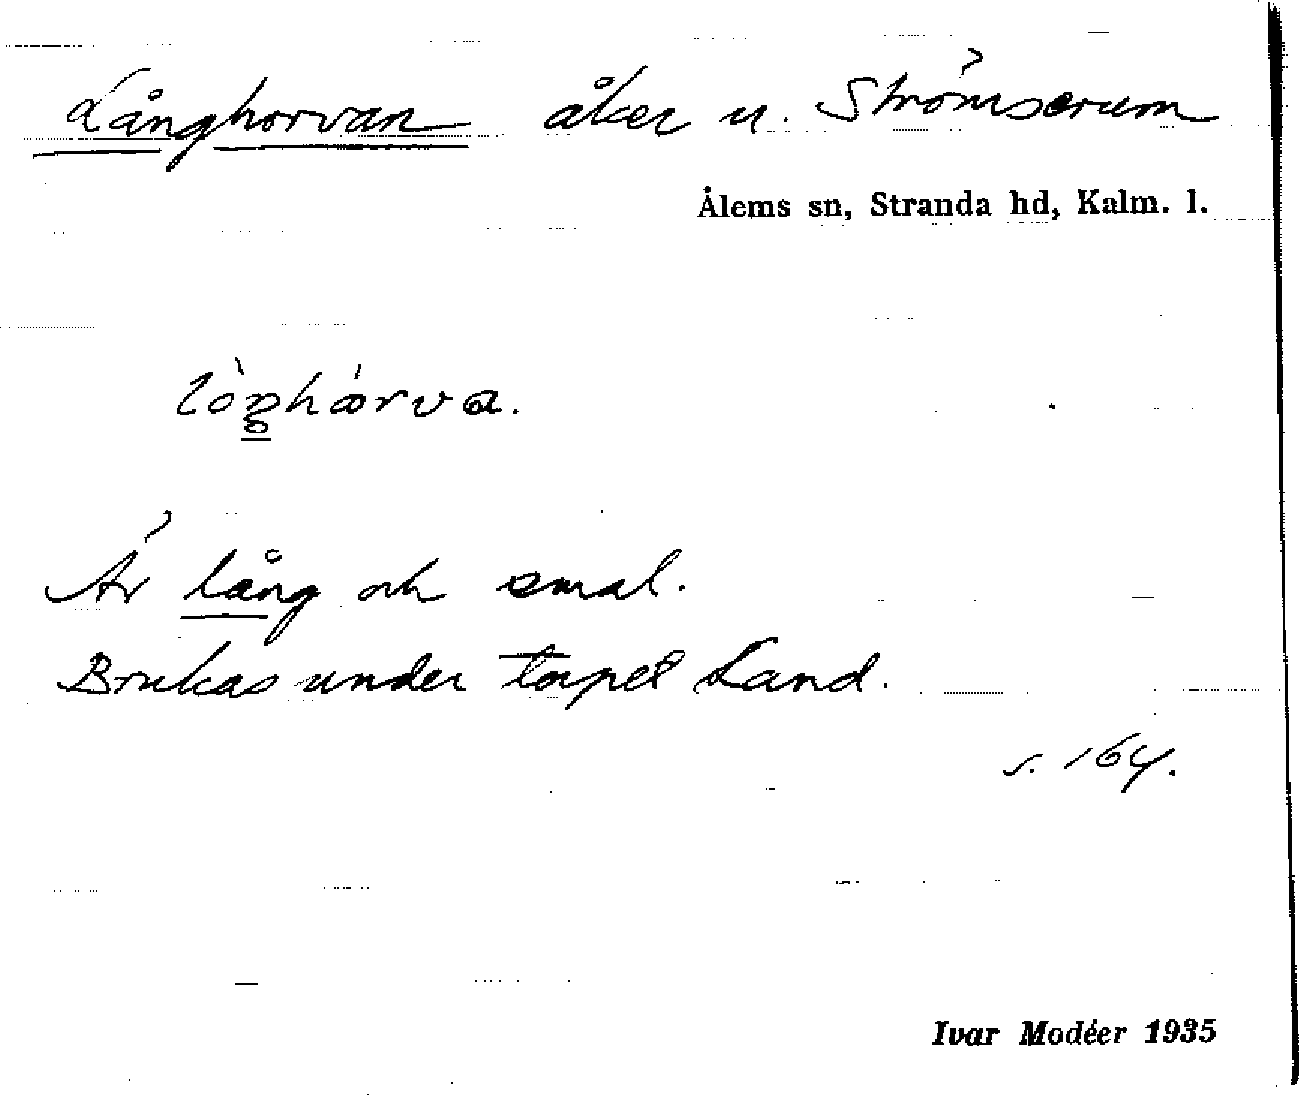 Långhorvan åker u. Strömserum
Ålems sn, Stranda hd, Kalm. l.
Är lång och smal.
Brukas under torpet Land.
s. 164.
Ivar Modéer 1935